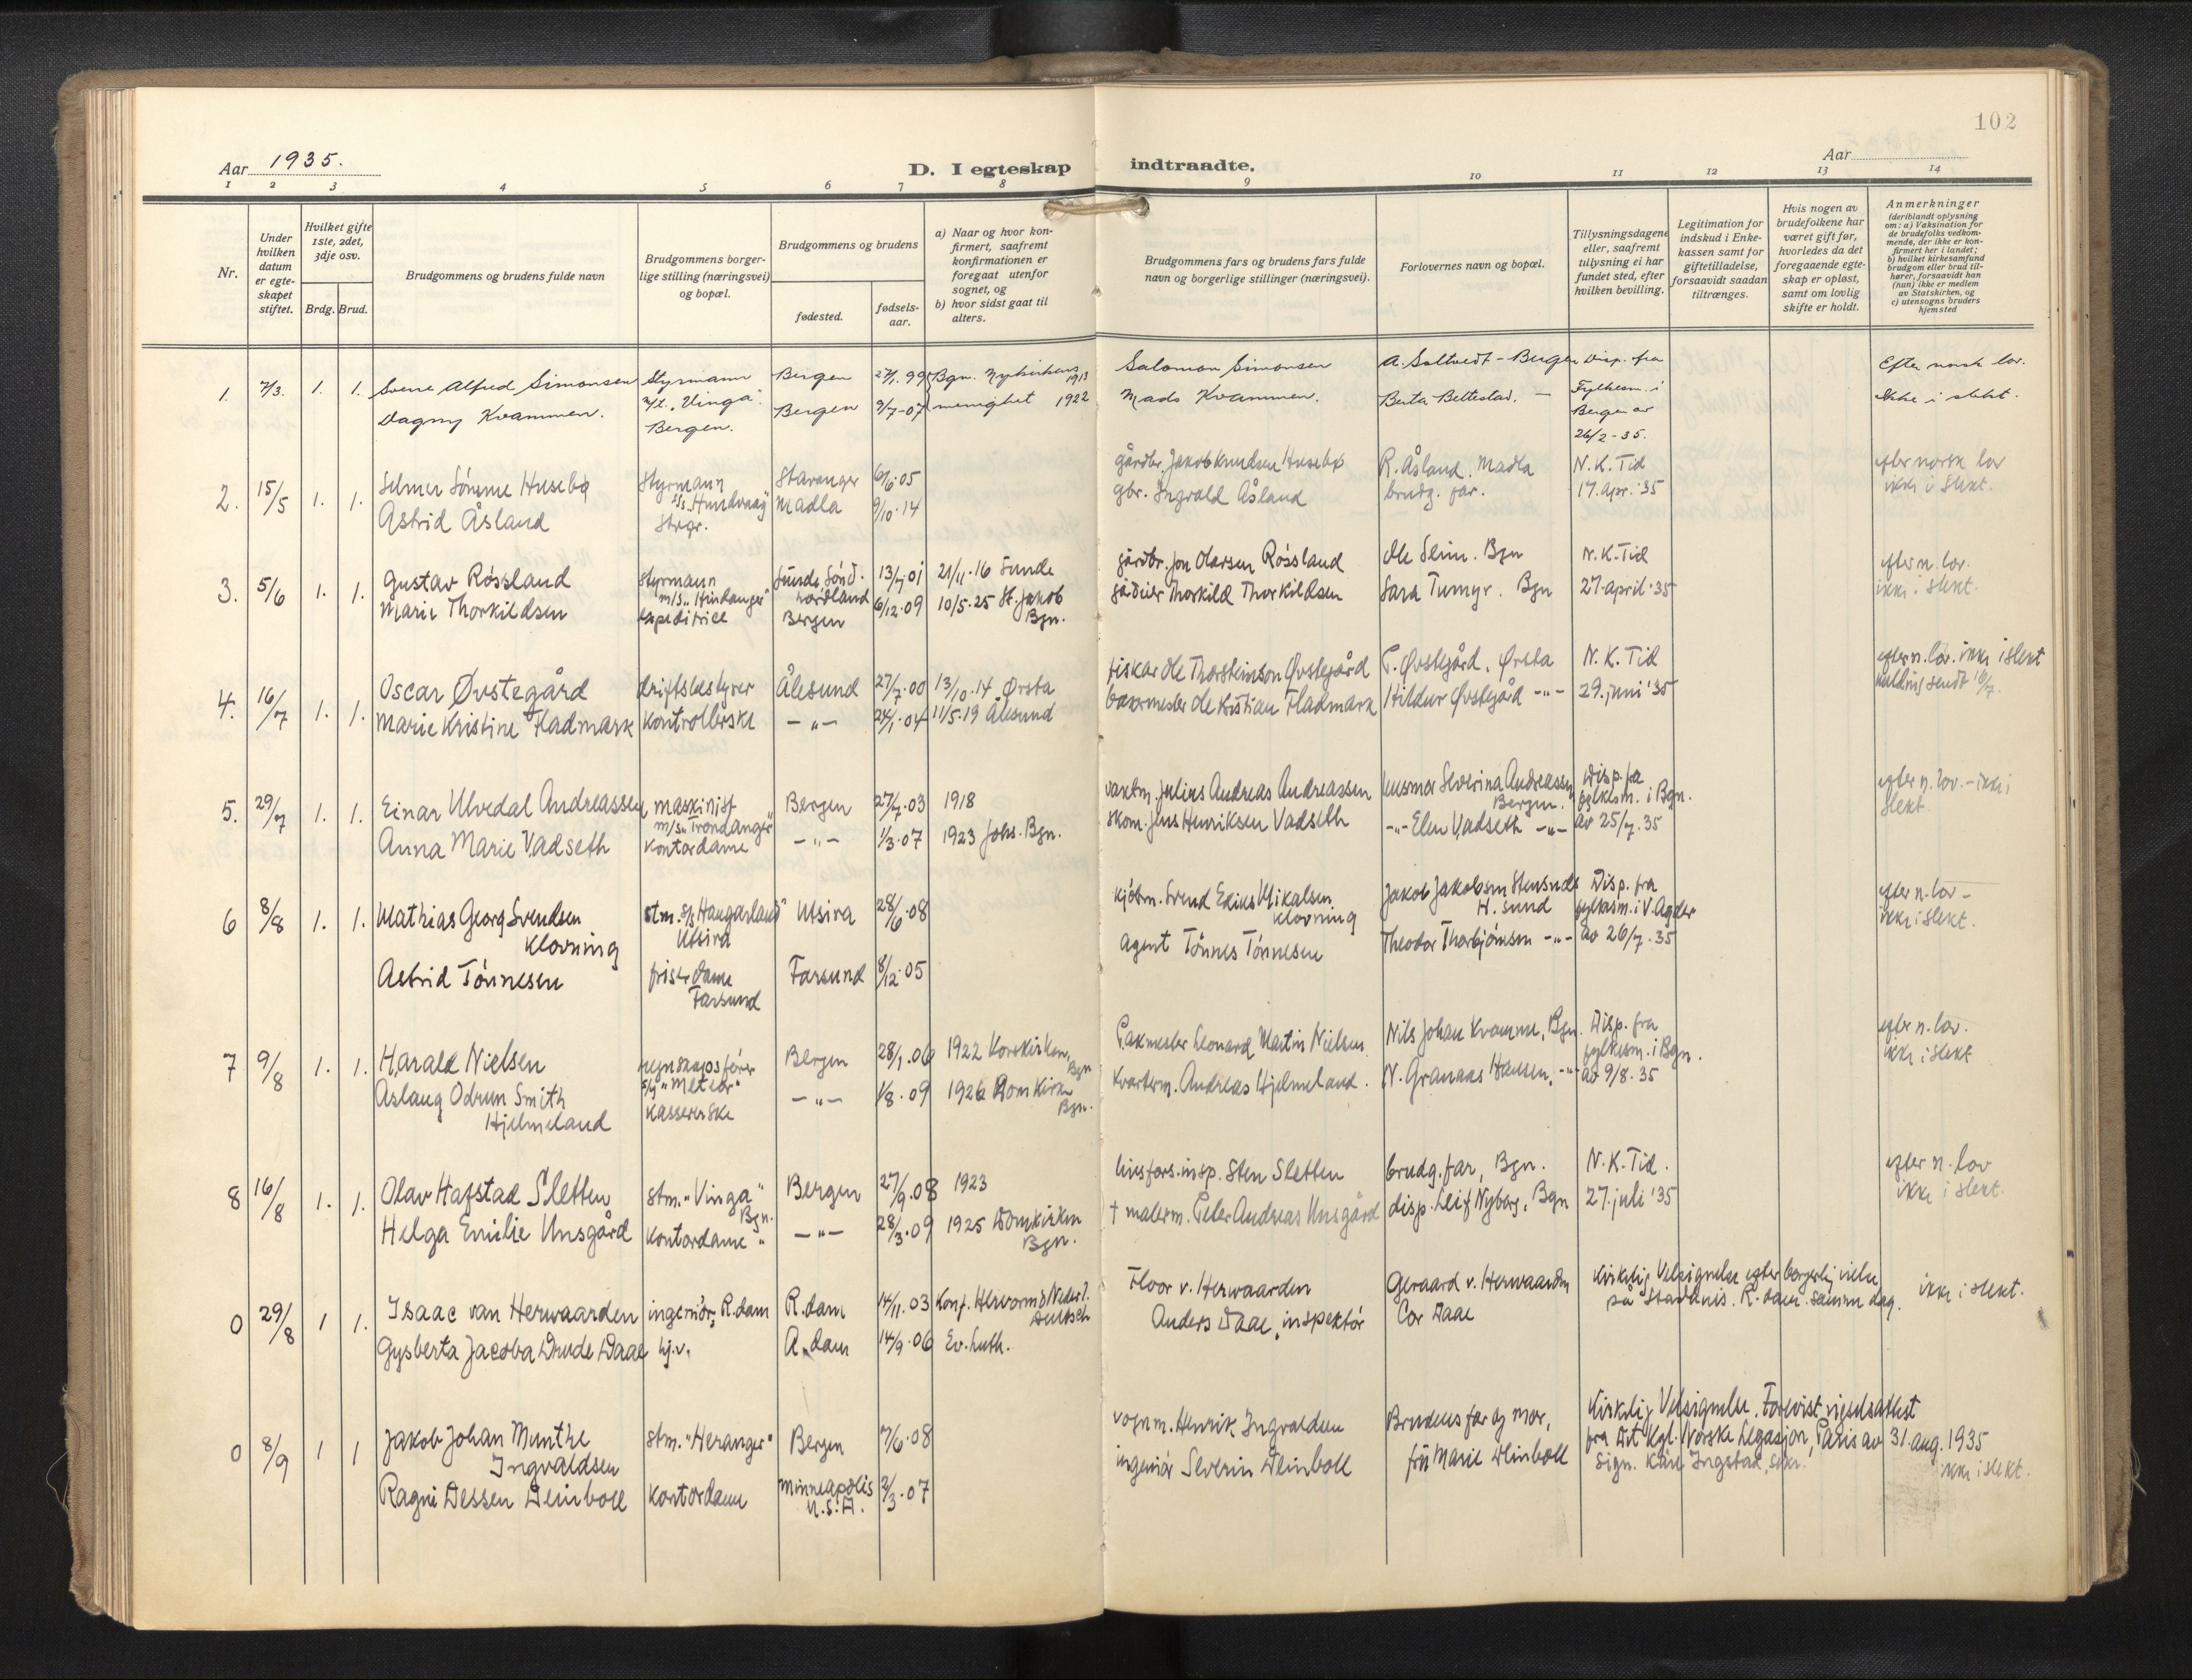 102
Aar 1935.
D. I egteskap indtraadte.
Aar
1 2 3 4 5 6 7 8 9 10 11 12 13 14
Nr.
Under hvilken datum er egte-skapet stiftet.
Hvilket gifte 1ste, 2det, 3dje osv.
Brdg. Brud.
Brudgommens og brudens fulde navn
Brudgommens borger-lige stilling (næringsvei) og bopæl.
Brudgommens og brudens
fødested.
fødsels-aar.
a) Naar og hvor kon-firmert, saafremt konfirmationen er foregaat utenfor sognet, og
b) hvor sidst gaat til alters.
Brudgommens fars og brudens fars fulde navn og borgerlige stillinger (næringsvei).
Forlovernes navn og bopæl.
Tillysningsdagene eller, saafremt tillysning ei har fundet sted, efter hvilken bevilling.
Legitimation for indskud i Enke-kassen samt for giftetilladelse, forsaavidt saadan tiltrænges.
Hvis nogen av brudefolkene har været gift før, hvorledes da det foregaaende egte-skap er opløst, samt om lovlig skifte er holdt.
Anmerkninger
(deriblandt oplysning om: a) Vaksination for de brudefolks vedkom-mende, der ikke er kon-firmert her i landet; b) hvilket kirkesamfund brudgom eller brud til-hører, forsaavidt han (hun) ikke er medlem av Statskirken, og c) utensogns bruders hjemsted
1. 7/3. 1. 1. Sverre Alfred Simonsen
Dagny Kvammen.
Styrmann
m/t. "Vinga".
Bergen.
Bergen
Bergen
27/1. 99
9/7-07
Bgn. Nykirkens 1913
menighet 1922
Salomon Simonsen
Mads Kvammen.
A. Saltvedt - Bergen
Berta Bettestad. —
Disp. fra
Fylkesm. i
Bergen av
26/2-35.
Efter norsk lov.
Ikke i slekt.
2. 15/5 1. 1. Selmer Sømme Husebø
Astrid Åsland
Styrmann
s/s "Hundvaag"
Stvgr.
Stavanger
Madla
6/6.05
9/10.14
gårdbr. Jakob Knudsen Husebø
gbr. Ingvald Åsland
R. Åsland. Madla
brudg. far.
N.K. Tid
17. apr. '35
efter norsk lov
ikke i slekt.
3. 5/6 1. 1. Gustav Røssland
Marie Thorkildsen
Styrmann
m/s "Hindanger"
expeditrice
Sunde, Sønd.
hordland
Bergen
13/7.01
6/12.09
21/11.16 Sunde
10/5.25 St. Jakob
Bgn.
gårdbr. Jon Olavsen Røssland
Thorkild Thorkildsen
Ole Seim. Bgn
Sara Tumyr. Bgn
N.K. Tid
27. april '35
efter n. lov.
ikke i slekt.
4. 16/7 1. 1. Oscar Øvstegård
Marie Kristine Fladmark
driftsbestyrer
kontrollørske
Ålesund
— " —
27/7.00
24/1.04
13/10.14 Ørsta
11/5.19 Ålesund
fiskar Ole Thorsteinson Øvstegård
bakermester Ole Kristian Fladmark
P. Øvstegård. Ørsta
Hildur Øvstegård - " -
N.K. Tid
29. juni '35
efter n. lov. ikke i slekt
melding sendt 16/7.
5. 29/7 1. 1. Einar Ulvedal Andreassen
Anna Marie Vadseth
maskinist
m/s "Trondanger"
kontordame
Bergen
— " —
27/7.03
1/3.07
1918
1923 Johs. Bgn.
vaktm. Julius Andreas Andreassen
skom. Jens Henriksen Vadseth
husmor Severina Andreassen
Bergen.
- " - Elen Vadseth - " -
Disp. fra
fylkesm. i Bgn.
av 25/7.35
efter n. lov. - ikke i
slekt.
6 8/8 1. 1. Mathias Georg Svendsen
Klovning
Astrid Tønnesen
stm. S/s "Haugarland"
Utsira
friserdame
Farsund
Utsira
Farsund
28/6.08
8/12.05
kjøbm. Svend Edius Mikalsen
Klovning
agent Tønnes Tønnesen
Jakob Jakobsen Stensnes
H.sund
Theodor Thorbjørnsen - " -
Disp. fra
fylkesm. i V. Agder
av 26/7.35
efter n. lov -
ikke i slekt.
7 9/8 1. 1. Harald Nielsen
Aslaug Odrun Smith
Hjelmeland
regnskapsfører
s/y "Meteor"
kassererske
Bergen
— " —
28/1.06
1/8.09
1922 Korskirken,
Bgn
1926 Domkirke
Bgn.
Pakmester Leonard Martin Nielsen
kvarterm. Andreas Hjelmeland.
Nils Johan Kvamme, Bgn.
N. Granaas Hansen, - " -
Disp. fra
fylkesm. i Bgn.
av 9/8.35
efter n. lov.
ikke i slekt
8 16/8 1. 1. Olav Hafstad Sletten
Helga Emilie Unsgård
stm. "Vinga"
Bgn.
kontordame "
Bergen
— " —
27/9.08
28/3.09
1923
1925 Domkirken
Bgn.
livsfors.insp. Sten Sletten
† malerm. Peter Andreas Unsgård
brudg. far, Bgn.
disp. Leif Nyberg, Bgn
N.K. Tid.
27. juli '35
efter n. lov
ikke i slekt.
0 29/8 1 1. Isaac van Herwaarden
Gysberta Jacoba Drude Daae
ingeniør, R.dam
hj.v.
R.dam
A.dam
14/11.03
14/9.06
Konf. Hervormd Nederl.
Ev. Luth.
Floor v. Herwaarden
Anders Daae, inspektør
Geraard v. Herwaarden
Cor Daae
Kirkelig Velsignelse efter borgerlig vielse
på Stadhuis. R.dam. samme dag.
ikke i slekt.
0 8/9 1 1 Jakob Johan Munthe
Ingvaldsen
Ragni Dessen Deinboll
stm. "Heranger"
kontordame
Bergen
Minneapolis
U.S.A.
7/6.08
2/3.07
vognm. Henrik Ingvaldsen
ingeniør Severin Deinboll
Brudens far og mor,
fru Marie Deinboll
Kirkelig Velsignelse. Forevist vigselsattest
fra Det Kgl. Norske Legasjon, Paris av 31. aug. 1935
sign. Kåre Ingstad, sekr.
ikke i slekt.